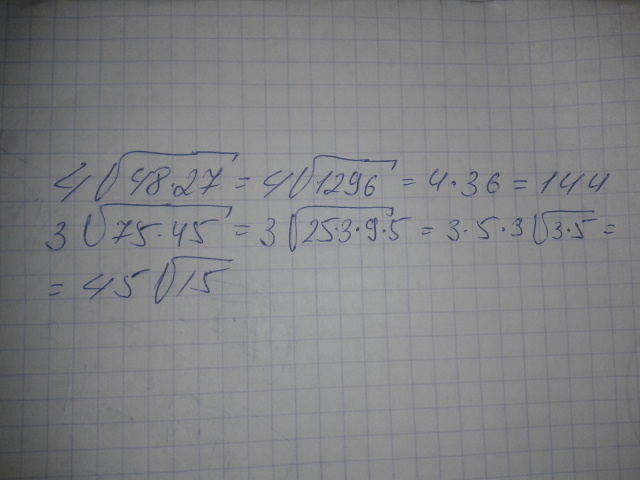 4√48·27 = 4√1296 = 4·36 = 144
3√75·45 = 3√25·3·9·5 = 3·5·3√3·5 =
= 45√15